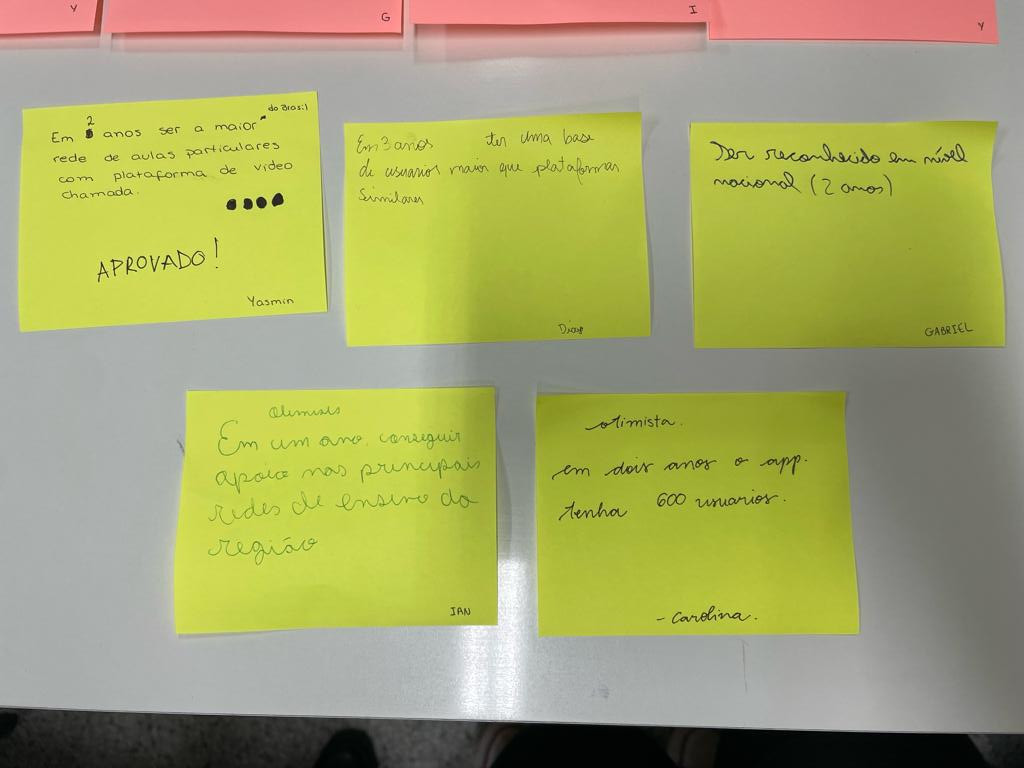 Y
G
I
Y
do Brasil
2
Em anos ser a maior
rede de aulas particulares
com plataforma de video
chamada.
APROVADO!
Yasmin
Em 3 anos ter uma base
de usuarios maior que plataformas
Similares
Diogo
Ser reconhecido em nível
nacional (2 anos)
GABRIEL
Em um ano, conseguir
apoio nas principais
redes de ensino da
região
IAN
otimista.
em dois anos o app.
tenha 600 usuarios.
- Carolina.